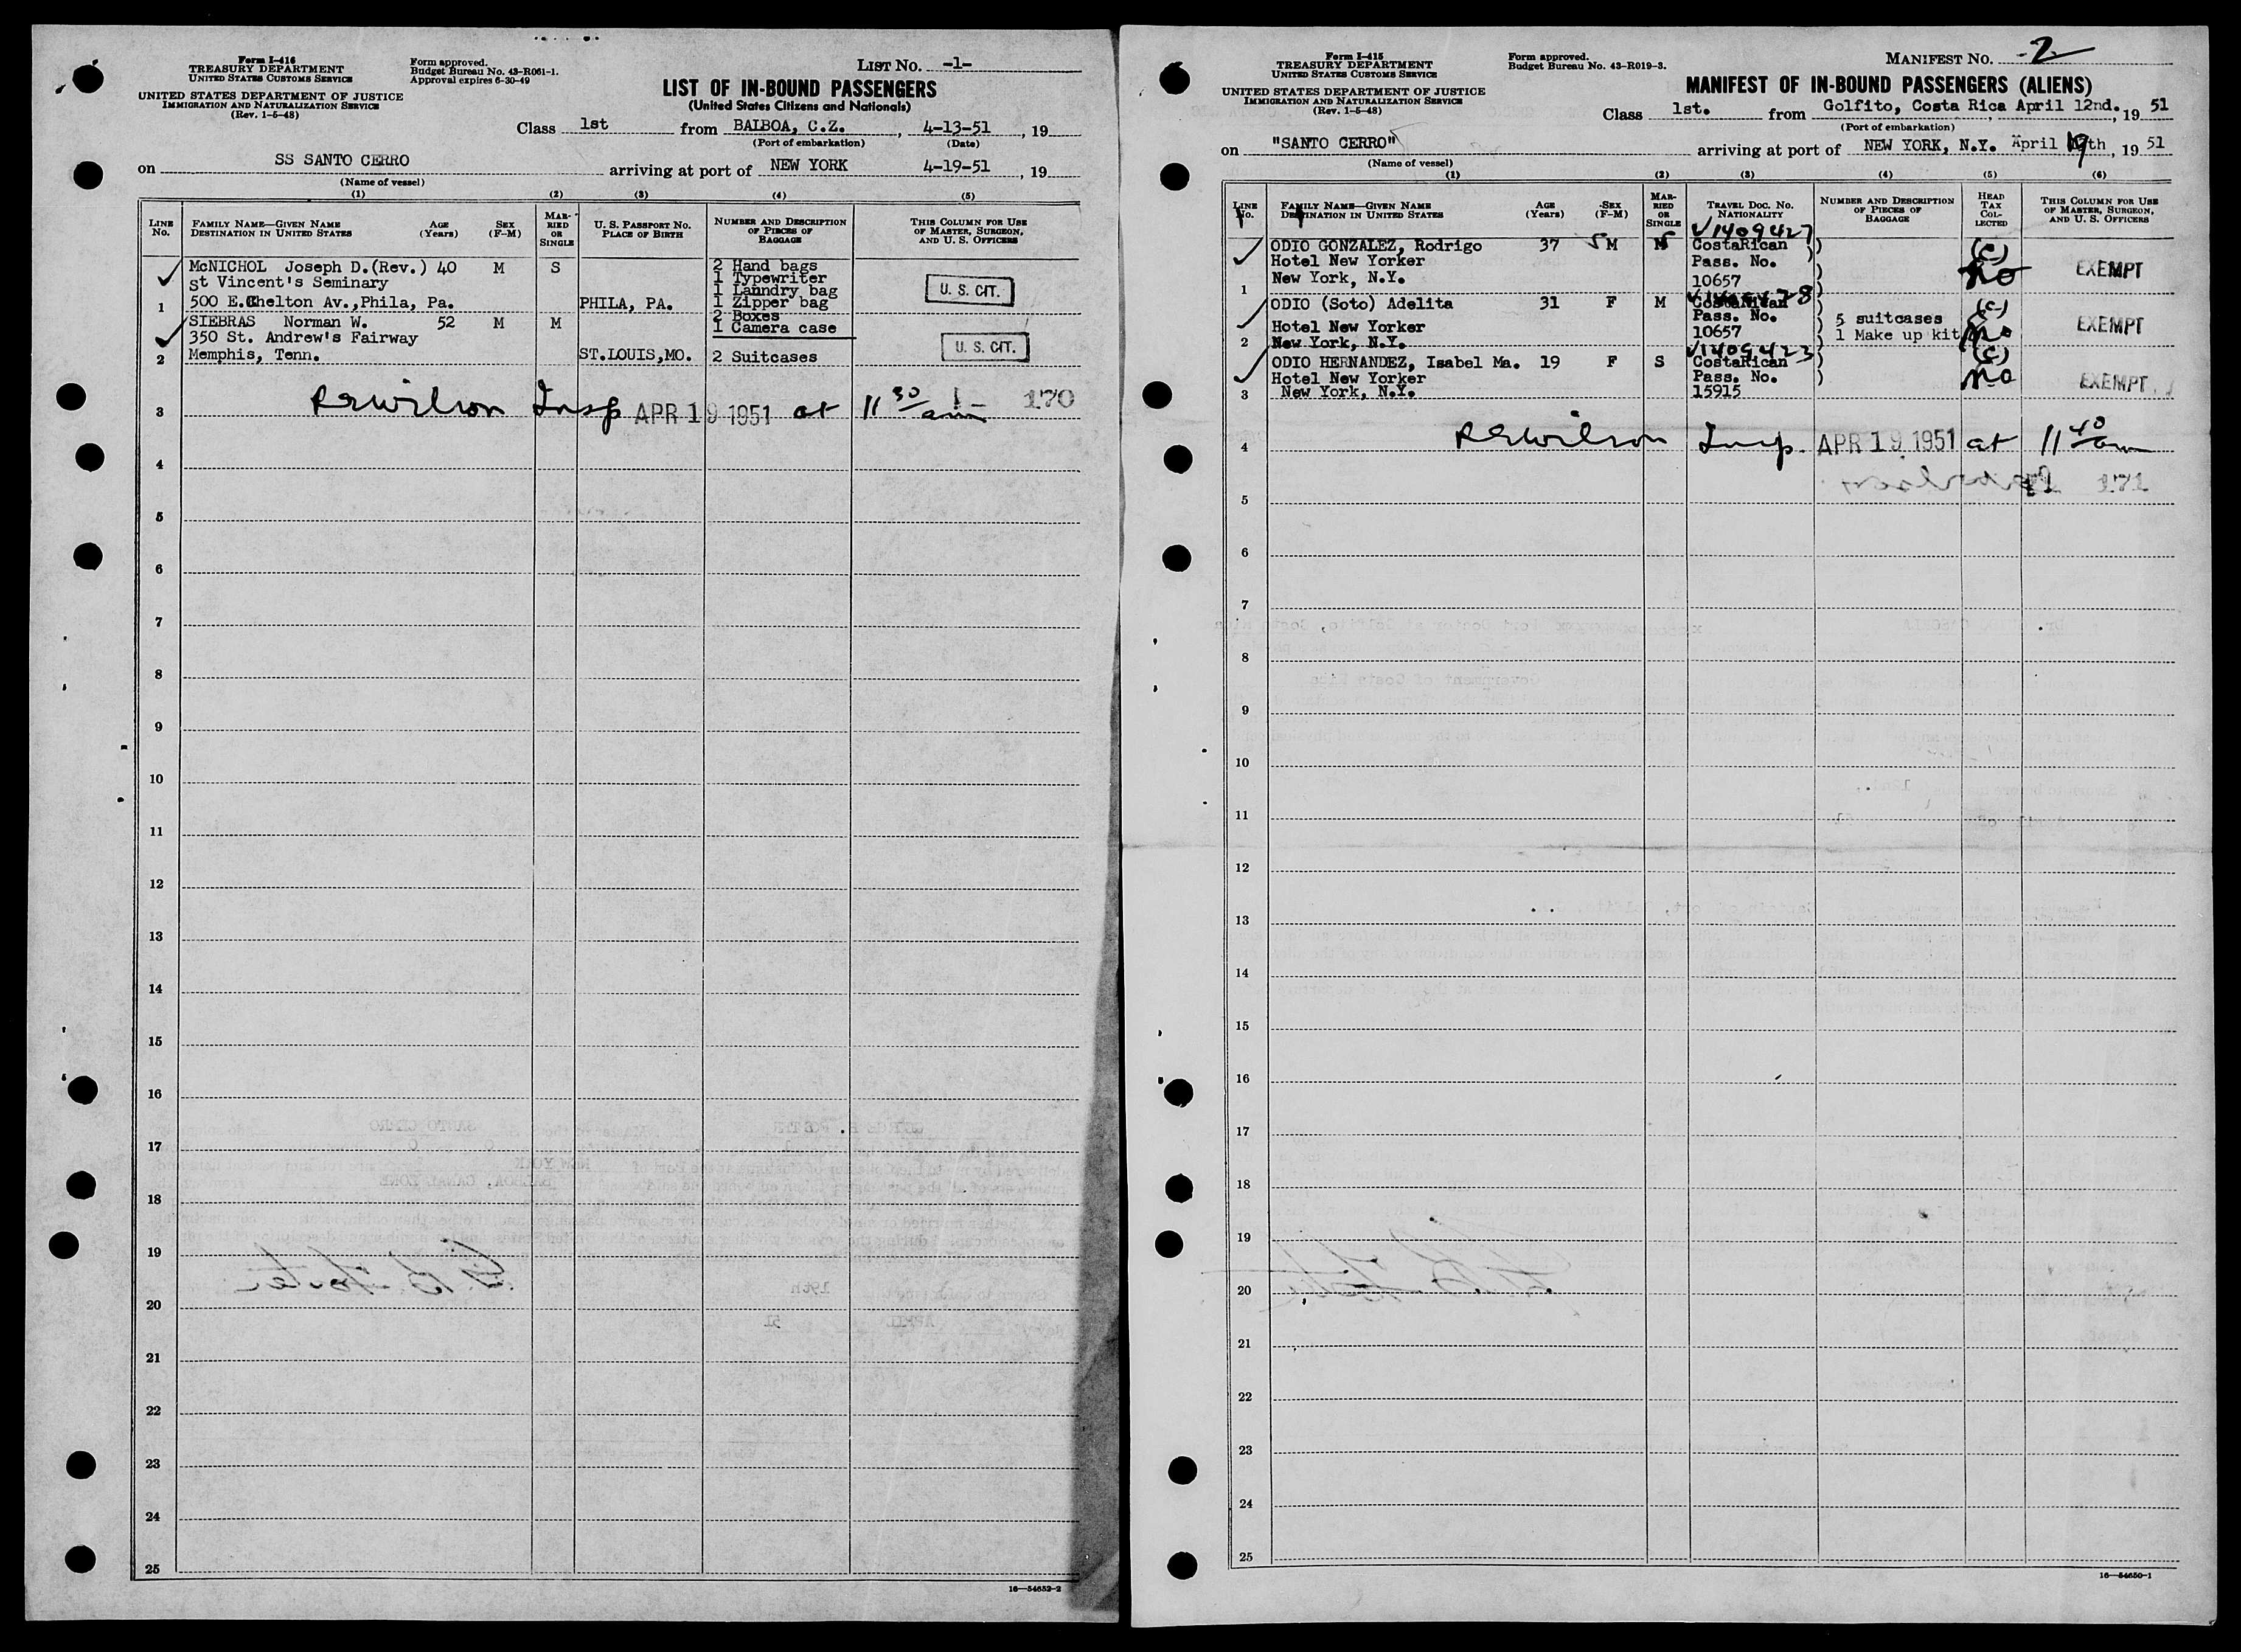 Form I-416
TREASURY DEPARTMENT
UNITED STATES CUSTOMS SERVICE
UNITED STATES DEPARTMENT OF JUSTICE
IMMIGRATION AND NATURALIZATION SERVICE
(Rev. 1-5-48)
Form approved.
Budget Bureau No. 43-R061-1.
Approval expires 6-30-49
LIST No. -1-
LIST OF IN-BOUND PASSENGERS
(United States Citizens and Nationals)
Class 1st from BALBOA, C.Z. , 4-13-51 , 19
(Port of embarkation) (Date)
on SS SANTO CERRO arriving at port of NEW YORK 4-19-51 , 19
(Name of vessel)
(1) (2) (3) (4) (5)
LINE No. FAMILY NAME—GIVEN NAME DESTINATION IN UNITED STATES AGE (Years) SEX (F-M) MARRIED OR SINGLE U. S. PASSPORT No. PLACE OF BIRTH NUMBER AND DESCRIPTION OF PIECES OF BAGGAGE THIS COLUMN FOR USE OF MASTER, SURGEON, AND U. S. OFFICERS
McNICHOL Joseph D.(Rev.) 40 M S 2 Hand bags
st Vincent's Seminary 1 Typewriter
1 Lanndry bag U. S. CIT.
1 500 E.Chelton Av.,Phila, Pa. PHILA, PA. 1 Zipper bag
2 Boxes
SIEBRAS Norman W. 52 M M 1 Camera case
350 St. Andrew's Fairway U. S. CIT.
2 Memphis, Tenn. ST.LOUIS,MO. 2 Suitcases
3 REWilson Insp APR 19 1951 at 11 30 am 170
4
5
6
7
8
9
10
11
12
13
14
15
16
17
18
19
20
21
22
23
24
25
16—54652-2
Form I-415
TREASURY DEPARTMENT
UNITED STATES CUSTOMS SERVICE
UNITED STATES DEPARTMENT OF JUSTICE
IMMIGRATION AND NATURALIZATION SERVICE
(Rev. 1-5-48)
Form approved.
Budget Bureau No. 43-R019-3.
MANIFEST No. -2-
MANIFEST OF IN-BOUND PASSENGERS (ALIENS)
Class 1st. from Golfito, Costa Rica April 12nd. , 19 51
(Port of embarkation)
on "SANTO CERRO" arriving at port of NEW YORK, N.Y. April 19th , 19 51
(Name of vessel)
(1) (2) (3) (4) (5) (6)
LINE No. FAMILY NAME—GIVEN NAME DESTINATION IN UNITED STATES AGE (Years) SEX (F-M) MARRIED OR SINGLE TRAVEL DOC. No. NATIONALITY NUMBER AND DESCRIPTION OF PIECES OF BAGGAGE HEAD TAX COLLECTED THIS COLUMN FOR USE OF MASTER, SURGEON, AND U. S. OFFICERS
V1409427
ODIO GONZALEZ, Rodrigo 37 M CostaRican ) (C)
Hotel New Yorker Pass. No. ) no EXEMPT
1 New York, N.Y. 10657 )
ODIO (Soto) Adelita 31 F M CostaRican ) (C)
Hotel New Yorker Pass. No. ) 5 suitcases EXEMPT
2 New York, N.Y. 10657 ) 1 Make up kit no
V1409423
ODIO HERNANDEZ, Isabel Ma. 19 F S CostaRican ) (C)
Hotel New Yorker Pass. No. ) no EXEMPT
3 New York, N.Y. 15915
4 REWilson Insp. APR 19 1951 at 11 40 am
5 171
6
7
8
9
10
11
12
13
14
15
16
17
18
19
20
21
22
23
24
25
16—54650-1